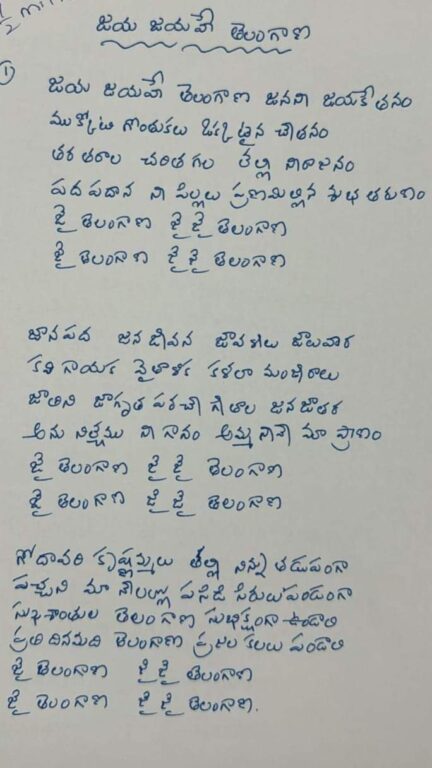 జయ జయహే తెలంగాణ
①
జయ జయహే తెలంగాణ జనని జయకేతనం
ముక్కోటి గొంతుకలు ఒక్కటైన చేతనం
తర తరాల చరిత గల తల్లి నీరాజనం
పద పదాన నీ పిల్లలు ప్రణమిల్లిన శుభ తరుణం
జై తెలంగాణ జై జై తెలంగాణ
జై తెలంగాణ జై జై తెలంగాణ
జానపద జన జీవన జావళీలు జాలువార
కవి గాయక వైతాళిక కళలా మంజీరాలు
జాతిని జాగృత పరచే గీతాల జన జాతర
అను నిత్యము నీ గానం అమ్మ నీవే మా ప్రాణం
జై తెలంగాణ జై జై తెలంగాణ
జై తెలంగాణ జై జై తెలంగాణ
గోదావరి కృష్ణమ్మలు తల్లి నిన్ను తడుపంగా
పచ్చని మా నేలల్లో పసిడి సిరులు పండంగా
సుఖ శాంతుల తెలంగాణ సుభిక్షంగా ఉండాలి
ప్రతి దినమది తెలంగాణ ప్రజల కలలు పండాలి
జై తెలంగాణ జై జై తెలంగాణ
జై తెలంగాణ జై జై తెలంగాణ.